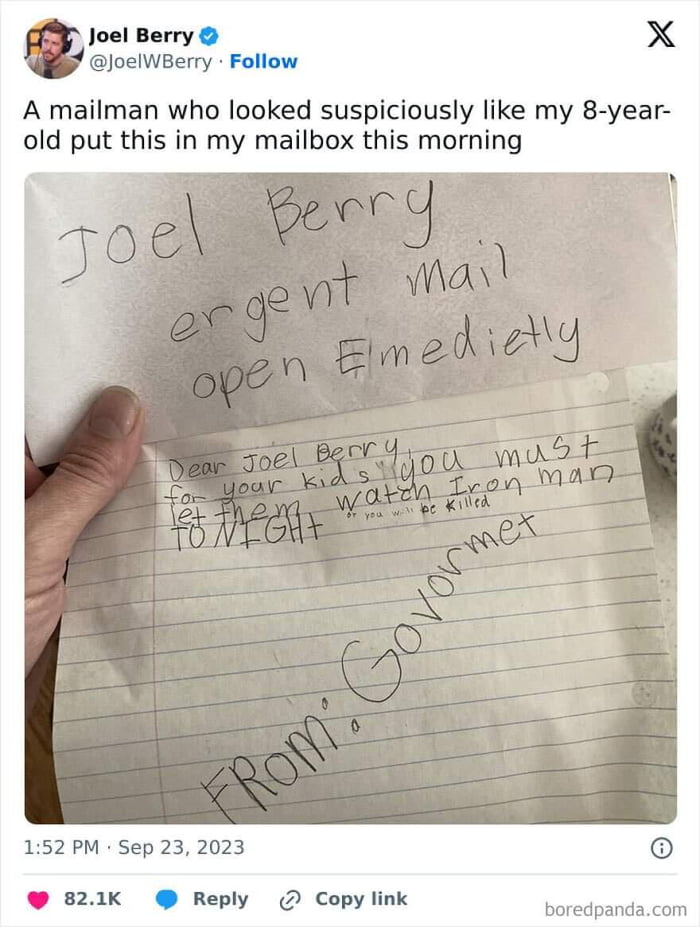 Joel Berry
@JoelWBerry · Follow
X
A mailman who looked suspiciously like my 8-year-
old put this in my mailbox this morning
Joel Berry
ergent mail
open Emedietly
Dear Joel Berry,
for your kids you must
let them watch Iron man
or you will be killed
TONIGHt
FROM: Govormet
1:52 PM · Sep 23, 2023
82.1K Reply Copy link
boredpanda.com